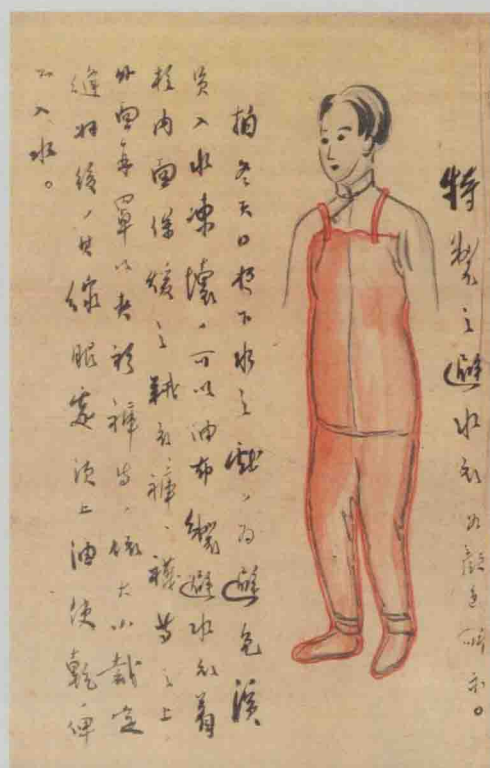 特製之避水衣如顏色所示。
拍冬天日裡下水之戲,為避免演
員入水凍壞,可以油布製避水衣着
於內面保煖之絨衣褲、襪等之上
外面再罩以衫褲等,依大小裁定
縫好後,其線眼處須上油使乾,俾
不入水。